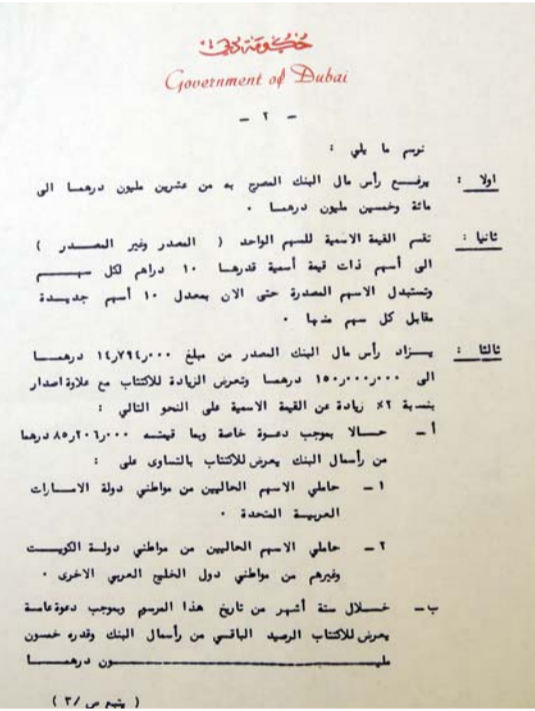 حكومة دبي
Government of Dubai
- ٢ -
نرسم ما يلي :
اولا : يرفع رأس مال البنك المصرح به من عشرين مليون درهما الى
مائة وخمسين مليون درهما .
ثانيا : تقسم القيمة الاسمية للسهم الواحد ( المصدر وغير المصدر )
الى أسهم ذات قيمة أسمية قدرها ١٠ دراهم لكل سهم
وتستبدل الاسهم المصدرة حتى الان بمعدل ١٠ أسهم جديدة
مقابل كل سهم منها .
ثالثا : يزاد رأس مال البنك المصدر من مبلغ ١٤ر٧٩٤ر٠٠٠ درهما
الى ١٥٠ر٠٠٠ر٠٠٠ درهما وتعرض الزيادة للاكتتاب مع علاوة اصدار
بنسبة ٢٪ زيادة عن القيمة الاسمية على النحو التالي :
أ - حالا بموجب دعوة خاصة وبما قيمته ٨٥ر٢٠٦ر٠٠٠ درهما
من رأسمال البنك يعرض للاكتتاب بالتساوى على :
١ - حاملي الاسهم الحاليين من مواطني دولة الامارات
العربية المتحدة .
٢ - حاملي الاسهم الحاليين من مواطني دولة الكويت
وغيرهم من مواطني دول الخليج العربي الاخرى .
ب - خلال ستة أشهر من تاريخ هذا المرسم وبموجب دعوة عامة
يعرض للاكتتاب الرصيد الباقي من رأسمال البنك وقدره خمسون
مليون درهما
( يتبع ص /٣ )